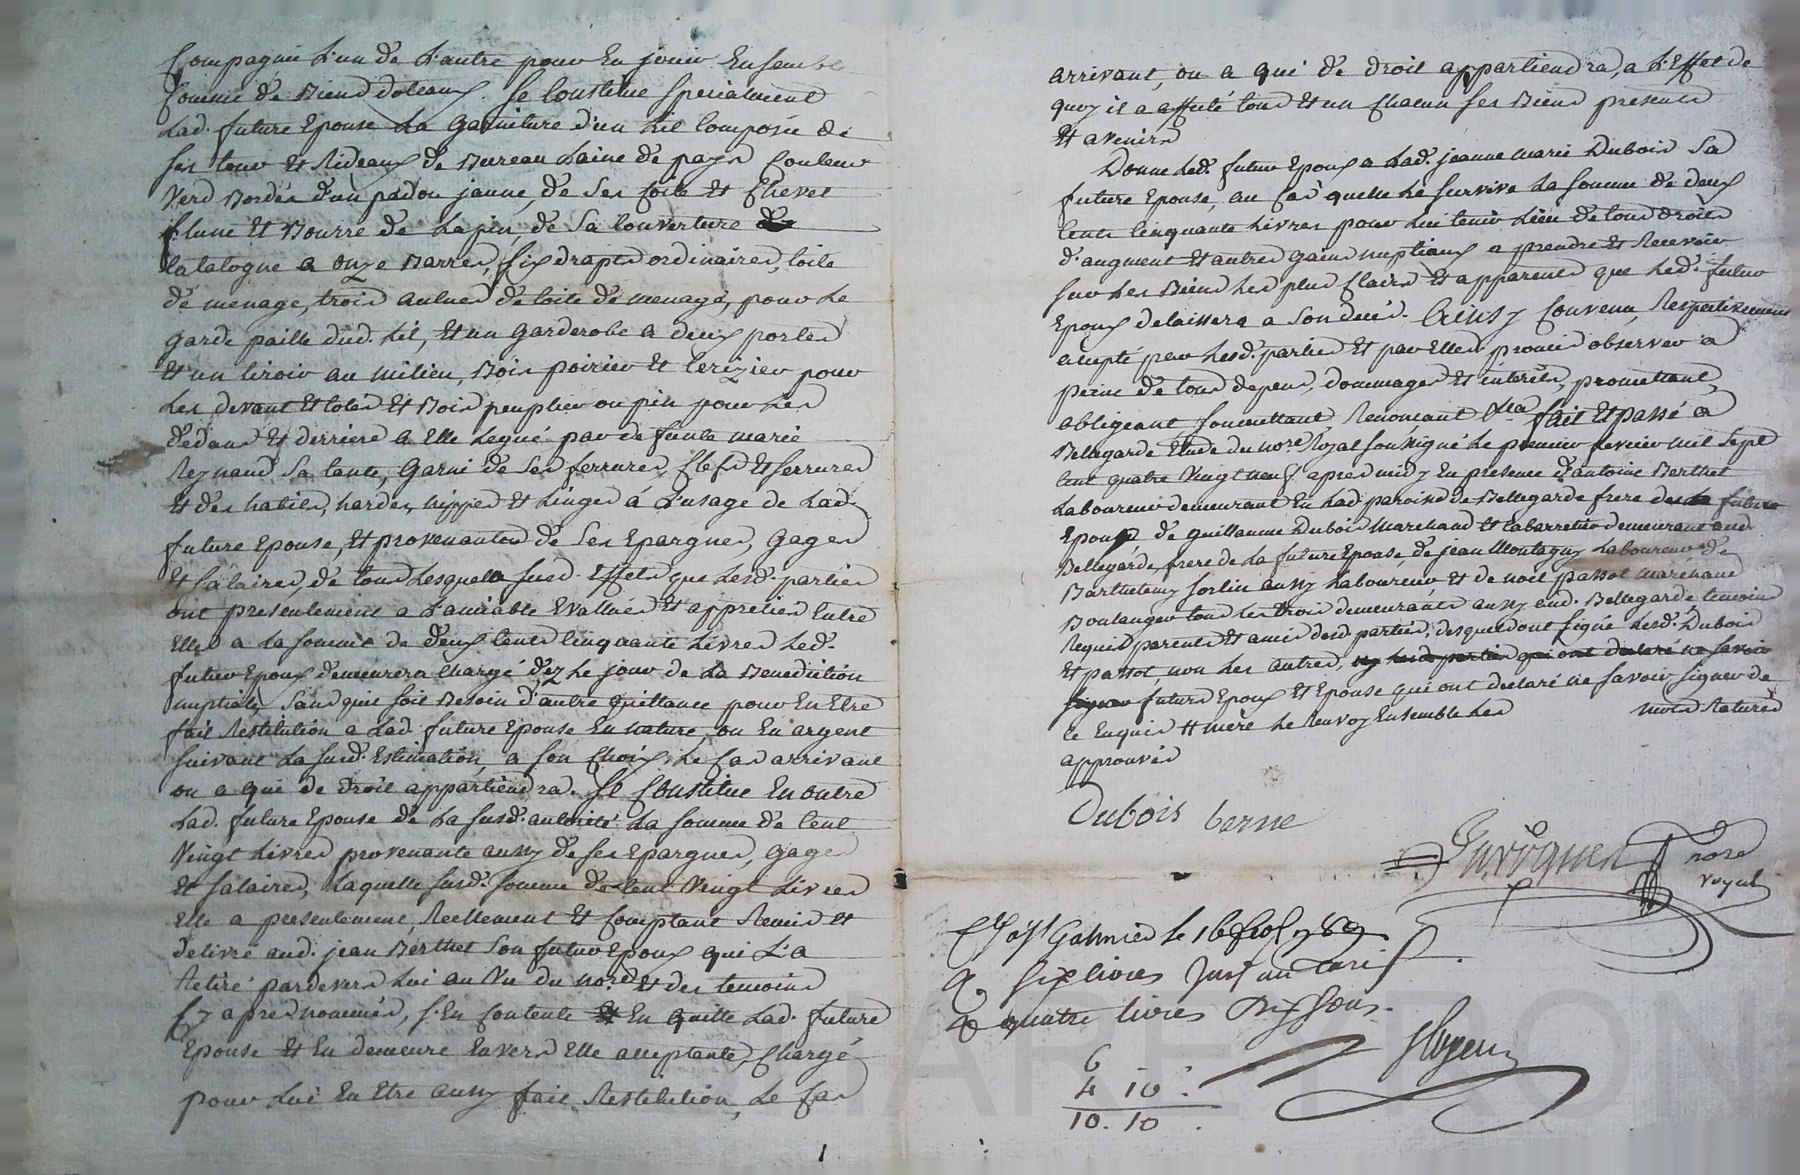 Compagnie L'un de L'autre pour En jouir Ensemble
Comme de Biens dotaux. Se Constitue specialment
Lad. future Epouse La garniture d'un Lit Composée de
ses tour et Rideaux de Bureau Laine de pays Couleur
Verd Bordés d'un padou jaune, de ses coite et Chevet
plume et Bourre de Lapin, de Sa Couverture
Catalogne a onze Barres, six draps ordinaires, toile
de menage, trois aulnes de toile de menage, pour Le
garde paille dud. Lit, et un garderobe a deux portes
et un tiroir au milieu, Bois poirier et Cerizier pour
Les devant et Cotés et Bois peuplier ou pin pour Les
dedans et derriere a Elle Legué par defunte marie
Reynaud Sa tante, garni de Ses ferrures, Clefs et serrures
et des habits, hardes, nippes et Linges á L'usage de Lad.
future Epouse, et provenant de Ses Epargnes, gages
et salaires, de tous Lesquels susd. Effets que Lesd. parties
ont presentement a L'amiable Evallués et appreciés Entre
Elles a La somme de deux Cents Cinquante Livres Led.
futur Epoux demeurera Chargé dez Le jour de La Benediction
nuptiale, Sans quil soit Besoin d'autre quittance pour En Etre
fait Restitution a Lad. future Epouse En nature, ou En argent
suivant La susd. Estimation, a son Choix, Le Cas arrivant
ou a qui de droit appartiendra. Se Constitue En outre
Lad. future Epouse de La susd. autorité La somme de Cent
Vingt Livres provenante aussy de ses Epargnes, gages
et salaires, Laquelle susd. somme de Cent Vingt Livres
Elle a presentement, Reellement et Comptant Remis et
delivré aud. jean Berthet Son futur Epoux qui L'a
Retiré pardevers Lui au Vu du nore. et des temoins
Cy apres nommés, s'En Contente En quitte Lad. future
Epouse et En demeure Envers Elle acceptante, Chargé
pour Lui En Etre aussy fait Restitution, Le Cas
arrivant, ou a qui de droit appartiendra, a L'Effet de
quoy il a affecté tous et un Chacun ses Biens presents
et avenirs
Donne Led. futur Epoux a Lad. jeanne marie Dubois Sa
future Epouse, au Cas quelle Le survive La somme de deux
Cents Cinquante Livres pour Lui tenir Lieu de tous droits
d'augment et autres gains nuptiaux a prendre et Recevoir
sur Les Biens Les plus Clairs et apparents que Led. futur
Epoux delaissera a Son decés. Ainsy Convenu, Respectivement
accepté par Lesd. parties et par Elles promis observer a
peine de tous depens, dommages et interets, promettant,
obligeant, soumettant, Renoncant &a fait et passé a
Bellegarde Etude du nore. Royal soussigné Le premier fevrier mil sept
Cent quatre Vingt neuf apres midy En presence d'antoine Berthet
Laboureur demeurant En Lad. paroisse de Bellegarde frere du futur
Epoux de guillaume Dubois Marchand et Cabarretier demeurant aud.
Bellegarde, frere de La future Epouse, de jean Montagny Laboureur de
Barthelemy forlin aussy Laboureur et de noel passot marchand
Boulanger tous Les trois demeurants aussy aud. Bellegarde, temoins
Requis parents et amis desd. parties, desquels ont signé Lesd. Dubois
et passot, non Les autres, ny lesd. parties qui ont declaré ne savoir
signer futurs Epoux et Epouse qui ont declaré ne savoir signer de
Ce Enquis # mère Le Renvoy Ensemble Les mots Raturés
approuvés
Dubois berne
nore
royal
galmier le 16 1789
six livres suiv un tarif
& quatre livres dix sous.
6
4 10
10. 10